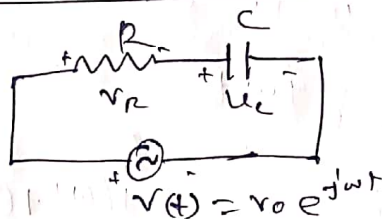 R C
+ - + -
V_R V_c
+ -
V(t) = v_0 e^{jωt}